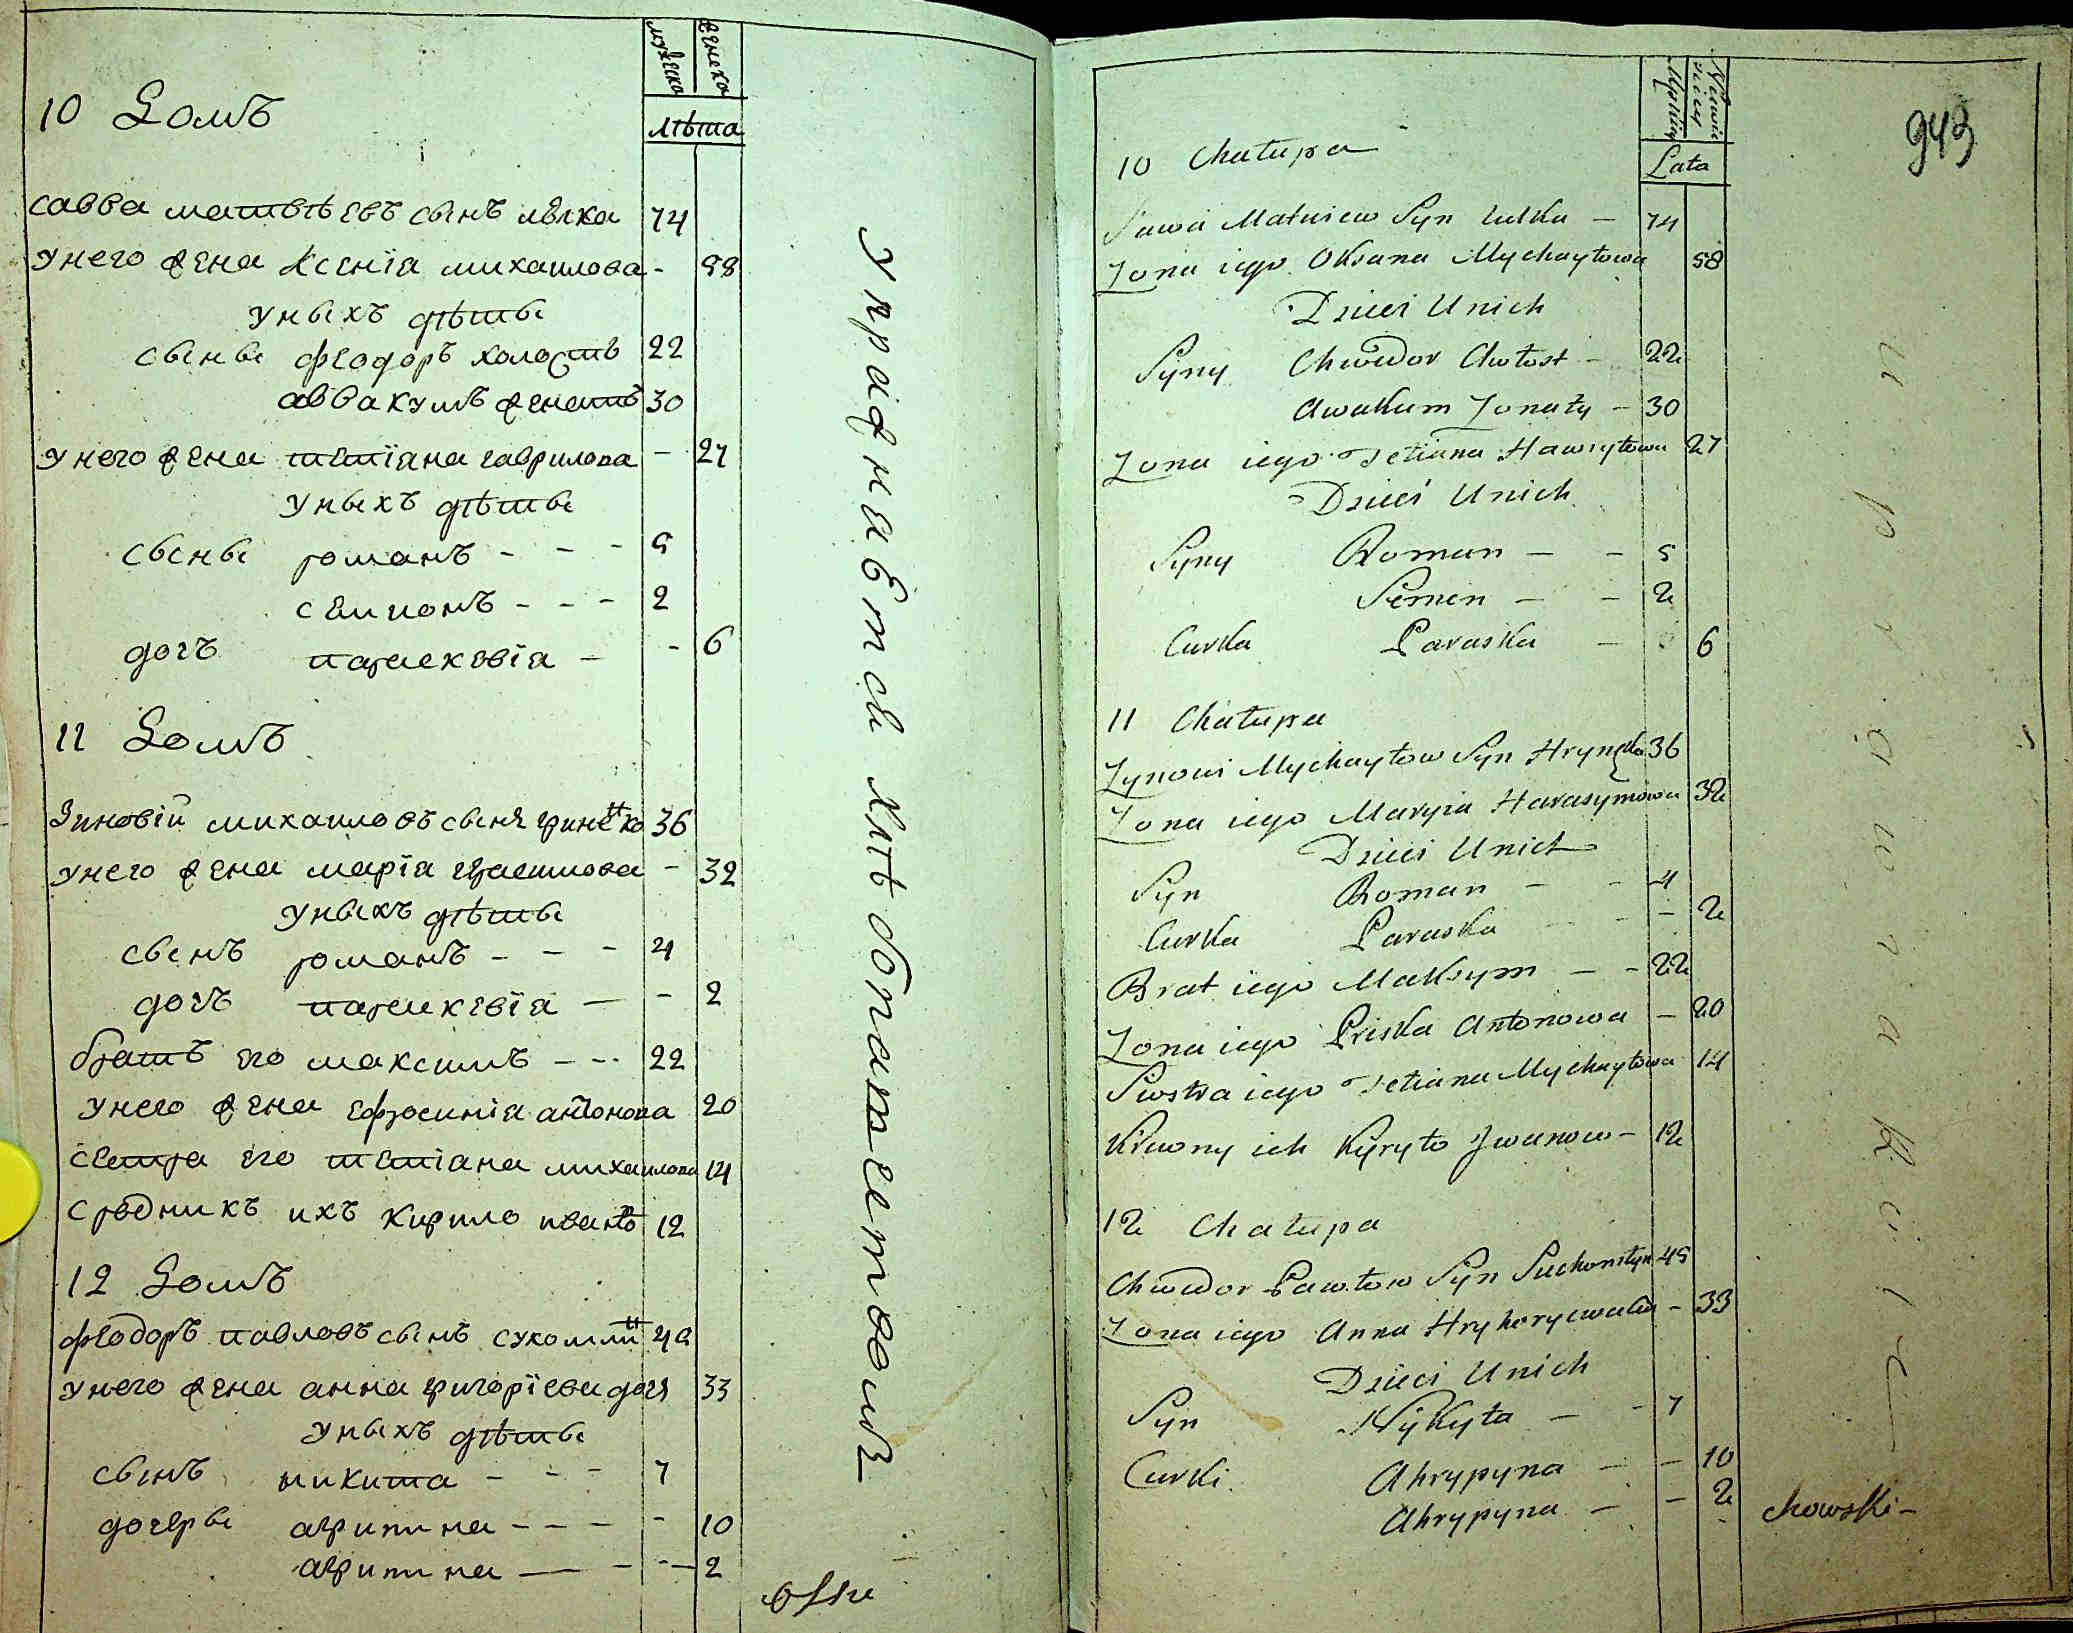 мужеска
женска
лѣта
10 Домъ
савва матвѣевъ сынъ лѣка 74
унего жена ксенїа михаилова - 58
уныхъ дѣты
сыны феодоръ холостъ 22
аввакумъ женатъ 30
унего жена тетїана гаврилова - 27
уныхъ дѣты
сыны романъ - - - 5
семионъ - - - 2
дочъ параскевїа - - 6
11 Домъ
Зиновїй михаиловъ сынъ гриненко 36
унего жена марїа гарасимова - 32
уныхъ дѣты
сынъ романъ - - 4
дочъ параскевїа - - 2
братъ его максимъ - - - 22
унего жена ефросинїа антонова 20
сестра его тетїана михаилова 14
сродникъ ихъ кирило ивановъ 12
12 Домъ
феодоръ павловъ сынъ сухомлин 45
унего жена анна григорїева дочъ 33
уныхъ дѣты
сынъ никита - - - 7
дочеры агрипина - - - - 10
агрипина - - - 2
Упражняется хлѣбопашетвомъ
943
Męskiey
Niewieściey
Lata
10 Chałupa
Sawa Matwiew Syn Lulka - 74
Żona iego Oksana Mychayłowa 58
Dzieci Unich
Syny Chwedor Chołost - 22
Awakum Żonaty - 30
Żona iego Tetiana Hawryłowa 27
Dzieci Unich
Syny Roman - - 5
Semen - - 2
Curka Paraska - 6
11 Chałupa
Zynowi Mychayłow Syn Hrynenko 36
Żona iego Maryia Harasymowa 32
Dzieci Unich
Syn Roman - - 4
Curka Paraska - 2
Brat iego Maksym - - 22
Żona iego Priska Antonowa - 20
Siostra iego Tetiana Mychayłowa 14
Krewny ich Kyryło Iwanow - 12
12 Chałupa
Chwedor Pawłow Syn Suchomłyn 45
Żona iego Anna Hryhorycwała - 33
Dzieci Unich
Syn Nykyta - - 7
Curki Ahrypyna - - 10
Ahrypyna - - 2
chowski -